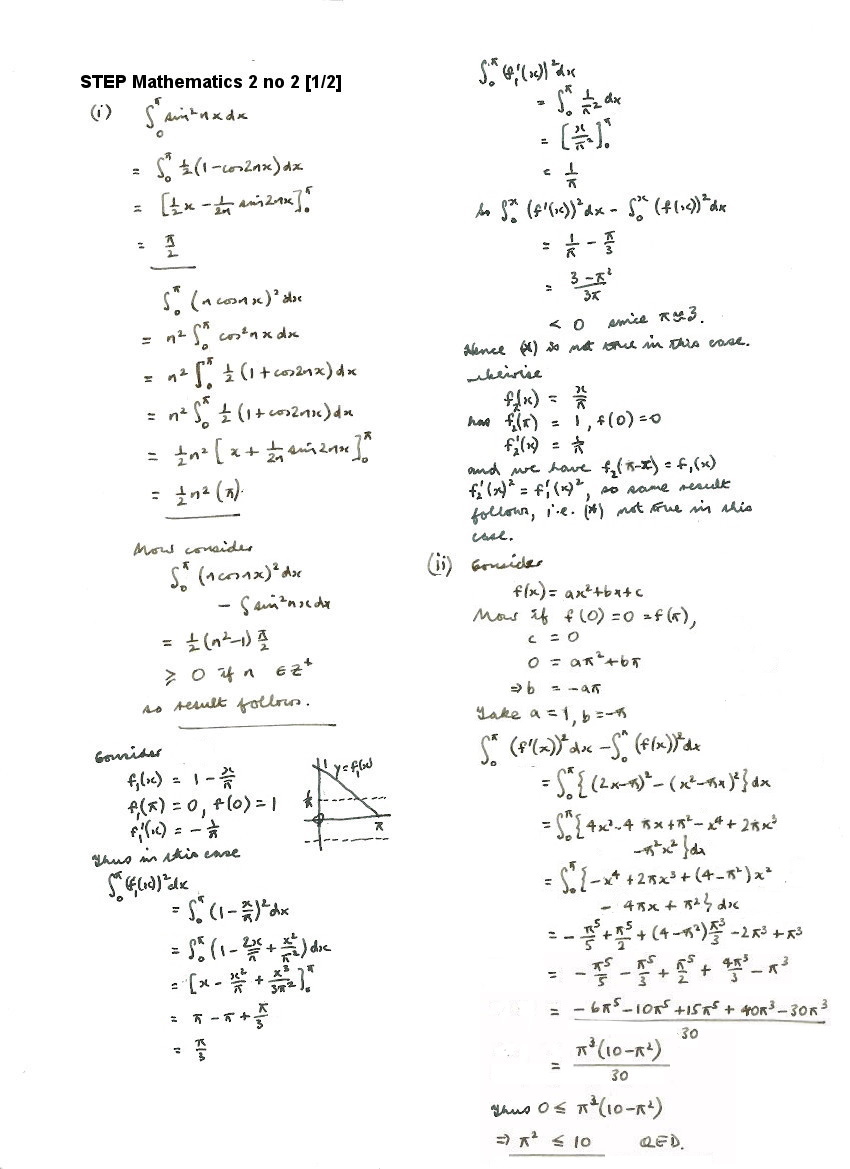 STEP Mathematics 2 no 2 [1/2]
(i) ∫₀^π sin²nx dx
= ∫₀^π ½(1-cos2nx)dx
= [½x - 1/2n sin2nx]₀^π
= π/2
∫₀^π (n cosnx)² dx
= n² ∫₀^π cos²nx dx
= n² ∫₀^π ½(1+cos2nx)dx
= n² ∫₀^π ½(1+cos2nx)dx
= ½n² [x + 1/2n sin2nx]₀^π
= ½n²(π).
Now consider
∫₀^π (n cosnx)² dx
- ∫sin²nx dx
= ½(n²-1)π/2
≥ 0 if n ∈ Z⁺
so result follows.
Consider
f₁(x) = 1 - x/π
f₁(π) = 0, f(0) = 1
f₁'(x) = -1/π
1 y=f₁(x)
1/π
π
Thus in this case
∫₀^π (f₁(x))² dx
= ∫₀^π (1 - x/π)² dx
= ∫₀^π (1 - 2x/π + x²/π²) dx
= [x - x²/π + x³/3π²]₀^π
= π - π + π/3
= π/3
∫₀^π (f₁'(x))² dx
= ∫₀^π 1/π² dx
= [x/π²]₀^π
= 1/π
So ∫₀^x (f'(x))² dx - ∫₀^x (f(x))² dx
= 1/π - π/3
= (3-π²)/3π
< 0 since π≈3.
Hence (*) is not true in this case.
Likewise
f₂(x) = x/π
has f₂(π) = 1, f(0)=0
f₂'(x) = 1/π
and we have f₂(π-x) = f₁(x)
f₂'(x)² = f₁'(x)², so same result
follows, i.e. (*) not true in this
case.
(ii) Consider
f(x) = ax²+bx+c
Now if f(0)=0=f(π),
c = 0
0 = aπ²+bπ
⇒ b = -aπ
Take a=1, b=-π
∫₀^π (f'(x))² dx - ∫₀^π (f(x))² dx
= ∫₀^π {(2x-π)² - (x²-πx)²} dx
= ∫₀^π {4x²-4πx+π²-x⁴+2πx³
-π²x²} dx
= ∫₀^π {-x⁴+2πx³+(4-π²)x²
- 4πx + π²} dx
= -π⁵/5 + π⁵/2 + (4-π²)π³/3 - 2π³ + π³
= -π⁵/5 - π⁵/3 + π⁵/2 + 4π³/3 - π³
= (-6π⁵-10π⁵+15π⁵+40π³-30π³)/30
= π³(10-π²)/30
Thus 0 ≤ π³(10-π²)
⇒ π² ≤ 10 QED.